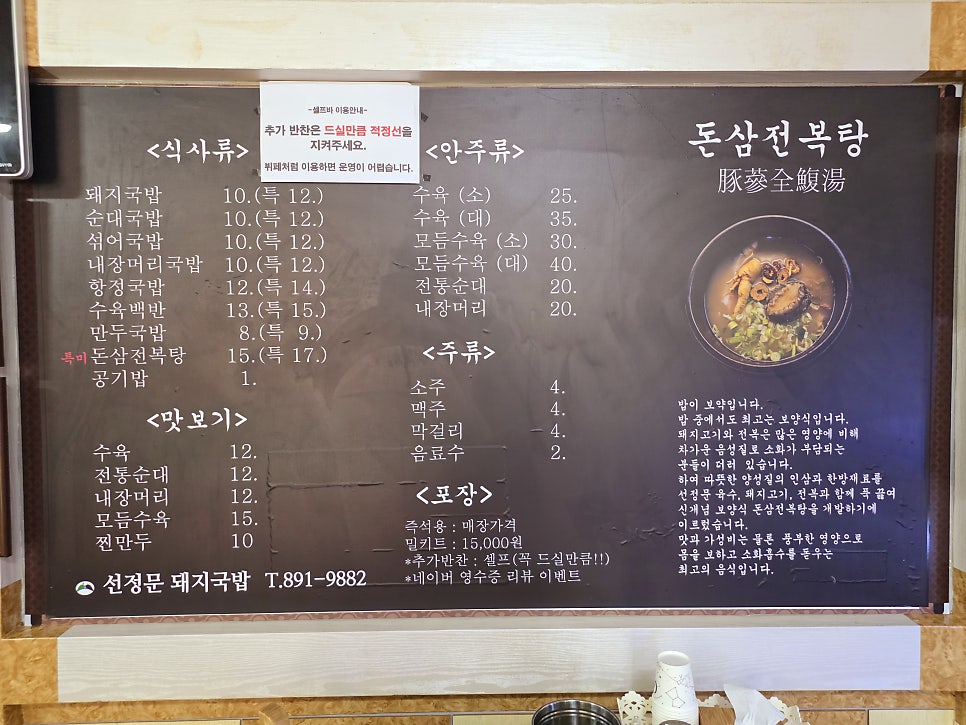 -셀프바 이용안내-
추가 반찬은 드실만큼 적정선을
지켜주세요.
뷔페처럼 이용하면 운영이 어렵습니다.
<식사류>
돼지국밥 10.(특 12.)
순대국밥 10.(특 12.)
섞어국밥 10.(특 12.)
내장머리국밥 10.(특 12.)
항정국밥 12.(특 14.)
수육백반 13.(특 15.)
만두국밥 8.(특 9.)
특미 돈삼전복탕 15.(특 17.)
공기밥 1.
<맛보기>
수육 12.
전통순대 12.
내장머리 12.
모듬수육 15.
찐만두 10
선정문 돼지국밥 T.891-9882
<안주류>
수육 (소) 25.
수육 (대) 35.
모듬수육 (소) 30.
모듬수육 (대) 40.
전통순대 20.
내장머리 20.
<주류>
소주 4.
맥주 4.
막걸리 4.
음료수 2.
<포장>
즉석용 : 매장가격
밀키트 : 15,000원
*추가반찬 : 셀프(꼭 드실만큼!!)
*네이버 영수증 리뷰 이벤트
돈삼전복탕
豚蔘全鰒湯
밥이 보약입니다.
밥 중에서도 최고는 보양식입니다.
돼지고기와 전복은 많은 영양에 비해
차가운 음성질로 소화가 부담되는
분들이 더러 있습니다.
하여 따뜻한 양성질의 인삼과 한방재료를
선정문 육수, 돼지고기, 전복과 함께 푹 끓여
신개념 보양식 돈삼전복탕을 개발하기에
이르렀습니다.
맛과 가성비는 물론 풍부한 영양으로
몸을 보하고 소화흡수를 돋우는
최고의 음식입니다.